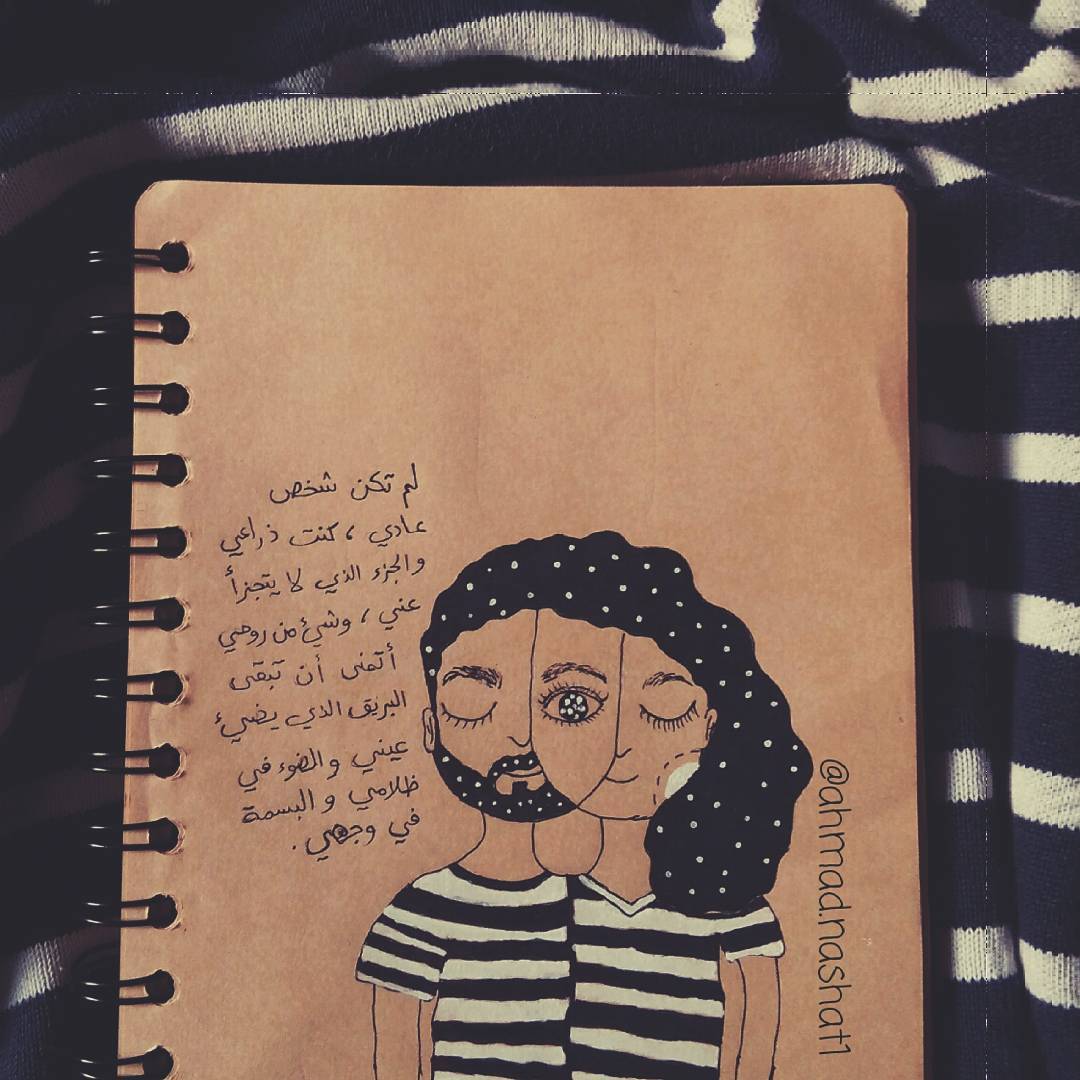 لم تكن شخص
عادي ، كنت ذراعي
والجزء الذي لا يتجزأ
عني ، وشيء من روحي
أتمنى أن تبقى
البريق الذي يضيء
عيني والضوء في
ظلامي و البسمة
في وجهي .
@ahmad.nashat1